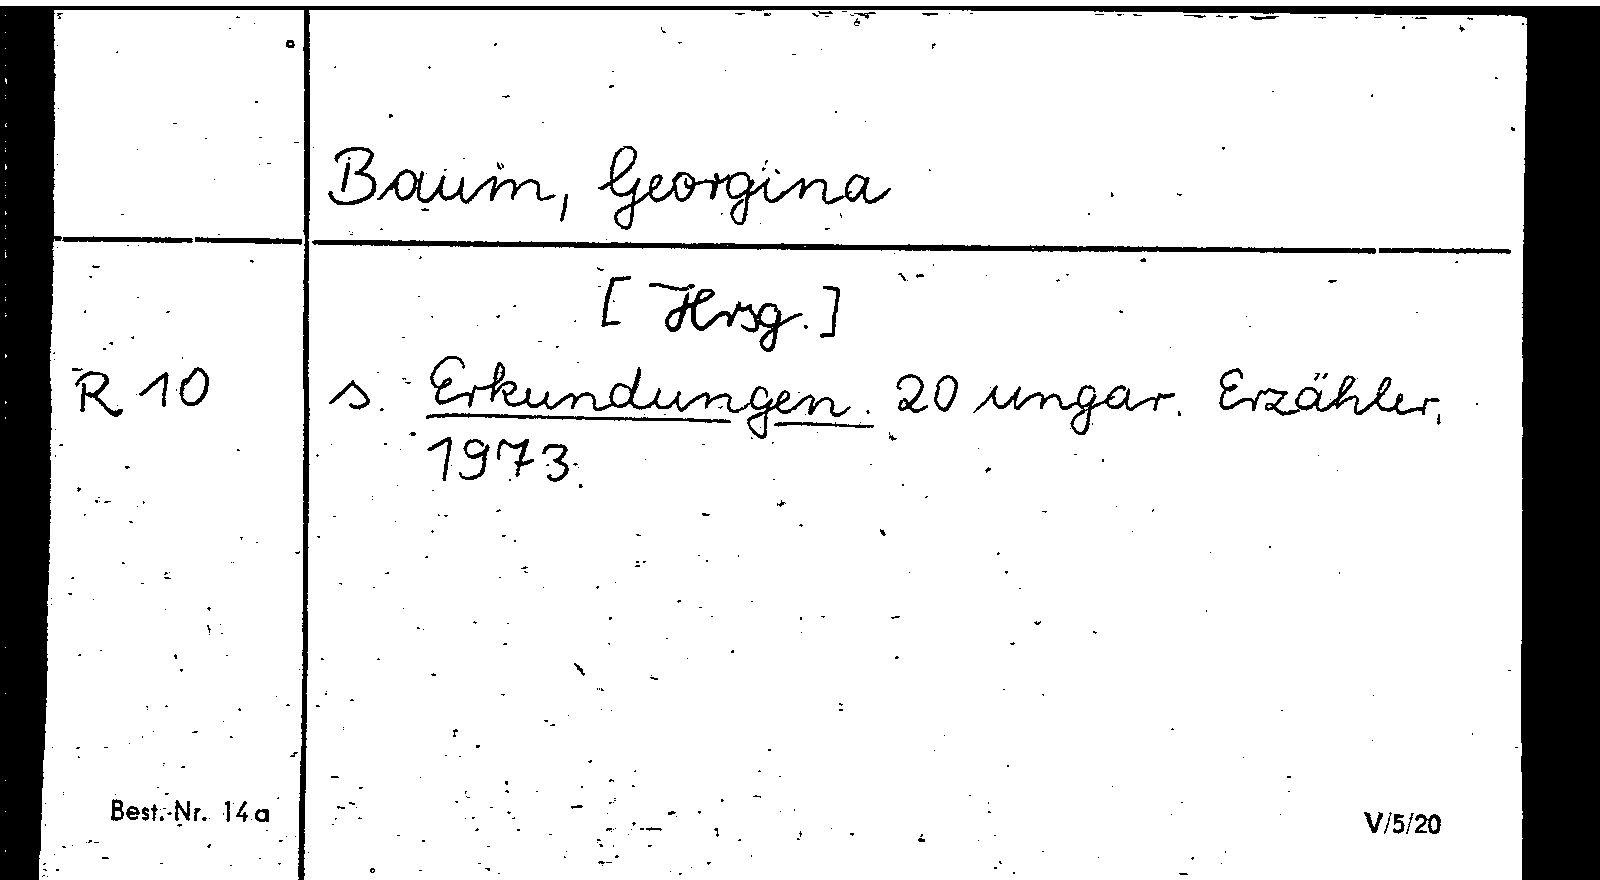 Baum, Georgina
[Hrsg.]
R 10 s. Erkundungen. 20 ungar. Erzähler,
1973.
Best.-Nr. 14a V/5/20